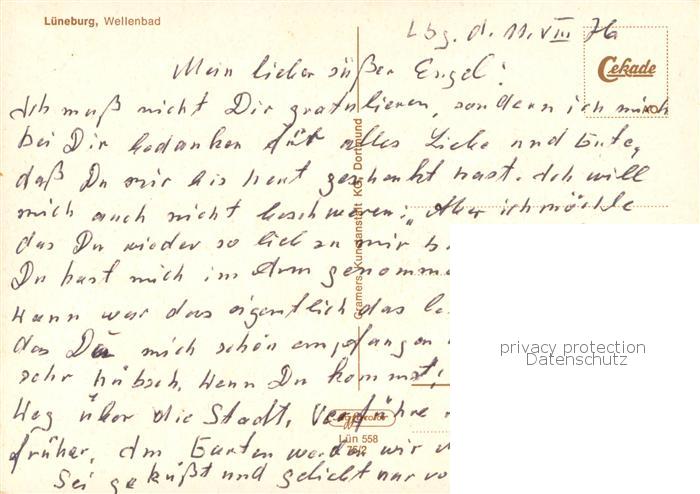 Lüneburg, Wellenbad
Lbg. d. 11. VIII 76
Cekade
Mein lieber süßer Engel!
Ich muß nicht Dir gratulieren, sondern ich mich
bei Dir bedanken für alles Liebe und Gute,
daß Du mir bis heut geschenkt hast. Ich will
mich auch nicht beschweren: "Aber ich möchte
das Du wieder so lieb zu mir b
Du hast mich im Arm genomm
wann war das eigentlich das le
das Du mich schön empfangen
sehr hübsch. Wenn Du kommst,
Weg über die Stadt. Verführe
früher, dm Garten werden wir
Sei geküßt und geliebt nur vo
Cramers Kunstanstalt KG, Dortmund
color
Lün 558
75/2
privacy protection
Datenschutz